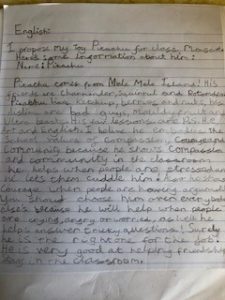 English:
I propose my Toy Pikachu for class Mascot
Here's some information about him:
Name: Pikachu
Pikachu comes from Mele Mele Island. His
friends are Charmander, Squirrel and Rotomdex
Pikachu loves Ketchup, berries and nuts, his
dislikes are bad guys, Mouldy Ketchup and
when bossy. His fav lessons are P.S.H.E
Art and English. I believe he embodies the
school values of Compassion, Courage and
Community because he shows Compassion
and community in the classroom
he helps when people are stressed and
he lets them cuddle him. He shows
Courage when people are having arguments
You should choose him over everybody
else's because he will help when people
are crying, angry or worries, as well he
helps answer tricky questions! Surely
he is the right one for the job!
He is very good at helping friendship
days in the classroom.